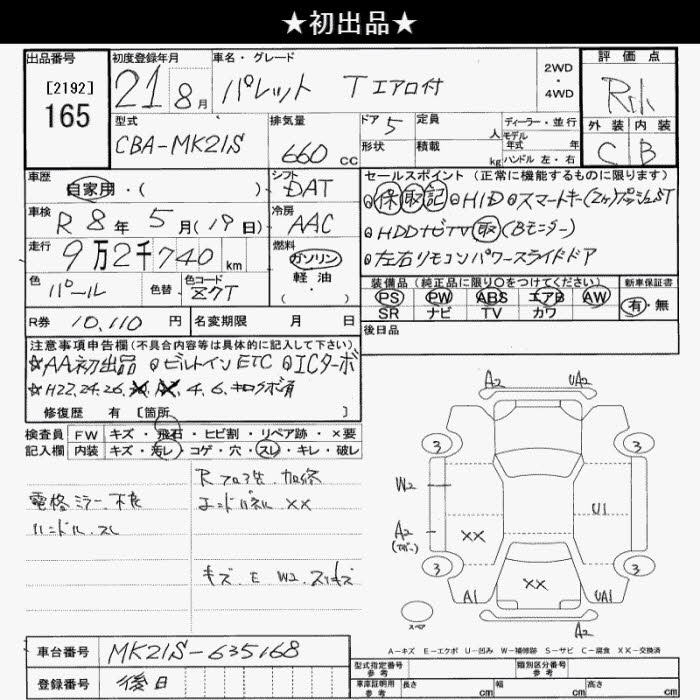 ★初出品★
出品番号
[2192]
165
初度登録年月
21 8月
車名・グレード
パレット Tエアロ付
2WD
・
4WD
評価点
外装 内装
C B
型式
CBA-MK21S
排気量
660 CC
ドア 5
形状
定員 人
積載 kg
ディーラー・並行
モデル年式 年
ハンドル 左・右
車歴
自家用・( )
シフト
DAT
車検
R 8年 5月(19日)
冷房
AAC
走行
9万2千740 km
燃料
ガソリン
軽油
・( )
色
パール
色替
色コード
ZVT
セールスポイント(正常に機能するものに限ります)
保 取 記 HID スマートキー
HDDナビTV 取 (Bモニター)
左右リモコンパワースライドドア
装備品(純正品に限り○をつけてください)
PS PW ABS エアB AW
SR ナビ TV カワ
新車保証書
有・無
R券 10,110 円
名変期限 月 日
後日品
注意事項申告欄(不具合内容等は具体的に記入して下さい)
☆AA初出品 ビルトインETC ICターボ
☆H22.24.26. 4.6.キロクボ有
修復歴 有 [箇所 ]
検査員 FW キズ・飛石・ヒビ割・リペア跡・×要
記入欄 内装 キズ・汚レ・コゲ・穴・スレ・キレ・破レ
電格ミラー不良
ハンドル.スレ
エンドパネル XX
キズ.E W2.スリキズ
A2 UA2
3 3
W2
A2
U1
XX
3 3
XX
A1 UA1
スペア
A2
A-キズ E-エクボ U-凹み W-補修跡 S-サビ C-腐食 XX-交換済
車台番号 MK21S-635168
登録番号 後日
型式指定番号 参考
類別区分番号 参考
車庫証明用 参考 長さ cm 幅 cm 高さ cm